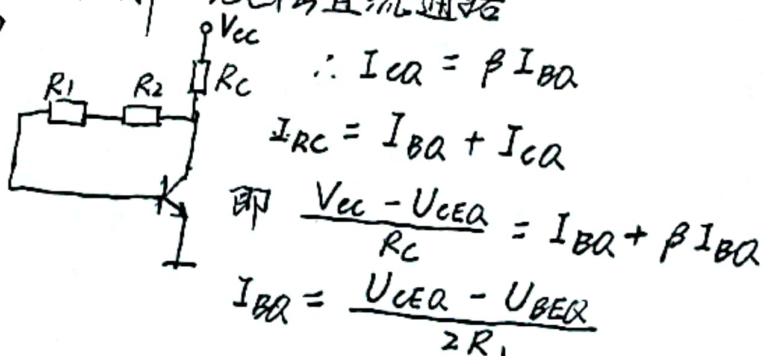 直流通路
Vcc
R1 R2 Rc
∴ ICQ = βIBQ
IRC = IBQ + ICQ
即 (Vcc - UCEQ)/Rc = IBQ + βIBQ
IBQ = (UCEQ - UBEQ)/2R1